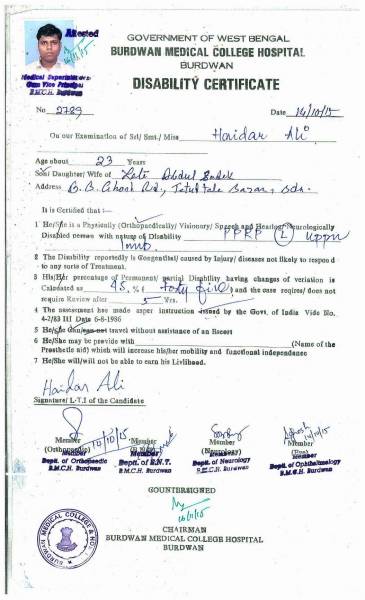 Attested
16/11/15
Medical Superintendent
Cum Vice Principal
B.M.C.H. Burdwan
GOVERNMENT OF WEST BENGAL
BURDWAN MEDICAL COLLEGE HOSPITAL
BURDWAN
DISABILITY CERTIFICATE
No 2789 Date 14/10/15
On our Examination of Sri/ Smt./ Miss Haidar Ali
Age about 23 Years
Son/ Daughter/ Wife of Late Abdul
Address B. B. Ghosh Rd., Bazar, Bdn.
It is Certified that :—
1 He/She is a Physically (Orthopaedically/ Visionary/ Speech and Hearing/Neurologically
Disabled person with nature of Disability PPRP (L) Upper
limb.
2 The Disability reportedly is Congenital/ caused by Injury/ diseases not likely to respond
to any sorts of Treatment.
3 His/Her percentage of Permanent/ partial Disability having changes of variation is
Calculated as 45 % ( Forty five ) and the case requires/ does not
require Review after 5 Yrs.
4 The assessment has made asper instruction issued by the Govt. of India Vide No.
4-2/83 III Date 6-8-1986
5 He/She Can/can not travel without assistance of an Escort
6 He/She may be provide with (Name of the
Prosthetic aid) which will increase his/her mobility and functional independence
7 He/She will/will not be able to earn his Livlihood.
Haidar Ali
Signature/ L-T.I of the Candidate
Member Member Member Member
(Orthopaedic) 14/10/15 (Neurology) (Eye) 14/10/15
Member Member Member Member
Deptt. of Orthopaedic Deptt. of E.N.T. Deptt. of Neurology Deptt. of Ophthalmology
B.M.C.H. Burdwan B.M.C.H. Burdwan B.M.C.H. Burdwan B.M.C.H. Burdwan
COUNTERSIGNED
16/11/15
CHAIRMAN
BURDWAN MEDICAL COLLEGE HOSPITAL
BURDWAN
BURDWAN MEDICAL COLLEGE &